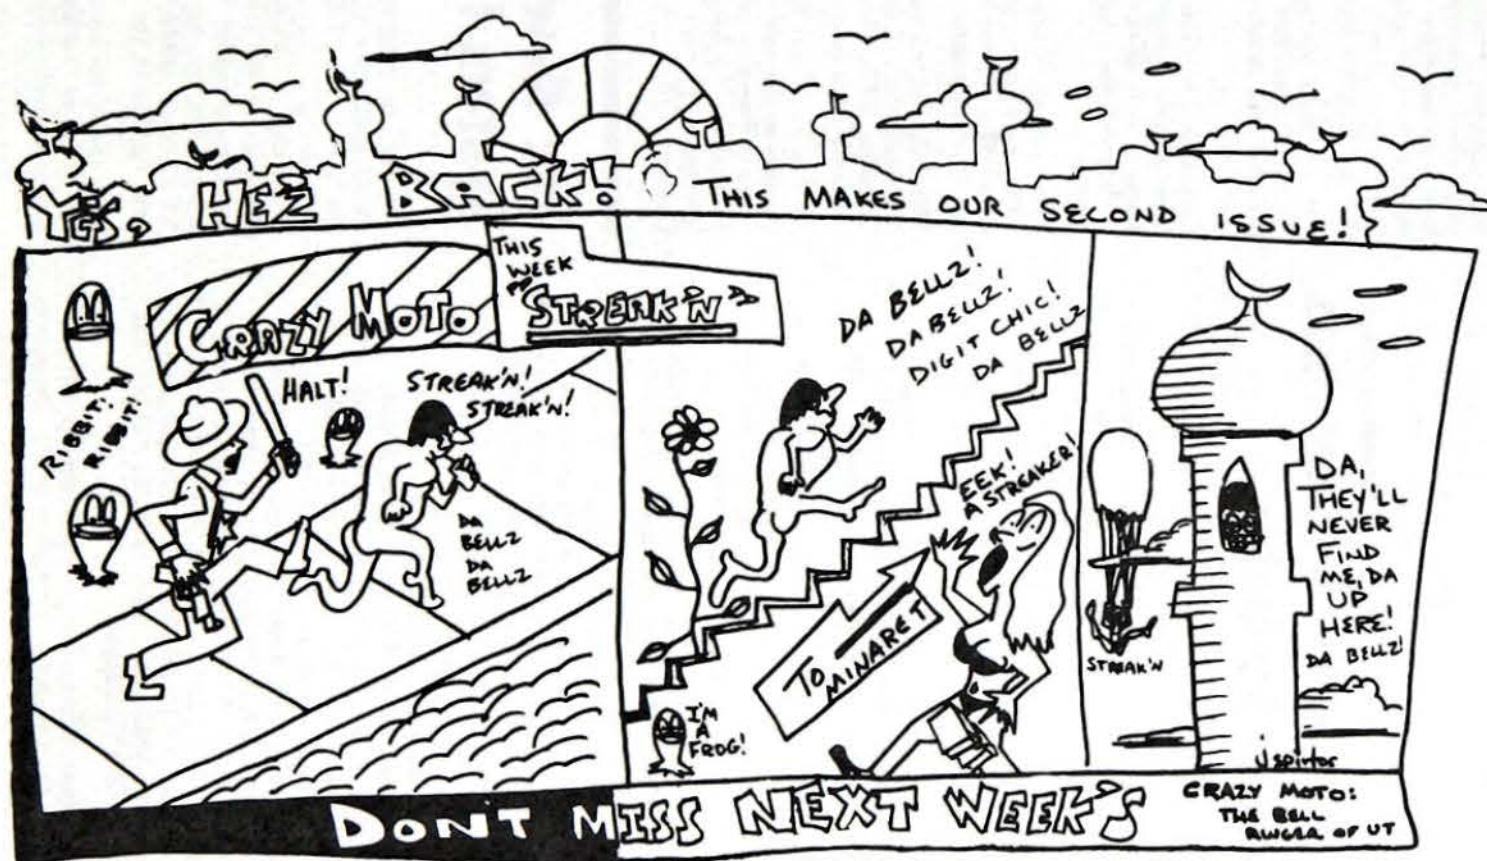 YES, HE'S BACK! THIS MAKES OUR SECOND ISSUE!
CRAZY MOTO
THIS
WEEK
"STREAK'N"
RIBBIT!
RIBBIT!
HALT!
STREAK'N!
STREAK'N!
DA
BELLZ
DA
BELLZ
DA BELLZ!
DA BELLZ!
DIGIT CHIC!
DA BELLZ
EEK!
A STREAKER!
TO MINARET
I'M
A
FROG!
STREAK'N
DA,
THEY'LL
NEVER
FIND
ME, DA
UP
HERE!
DA BELLZ!
j spirtos
DON'T MISS NEXT WEEK'S
CRAZY MOTO:
THE BELL
RINGER OF UT